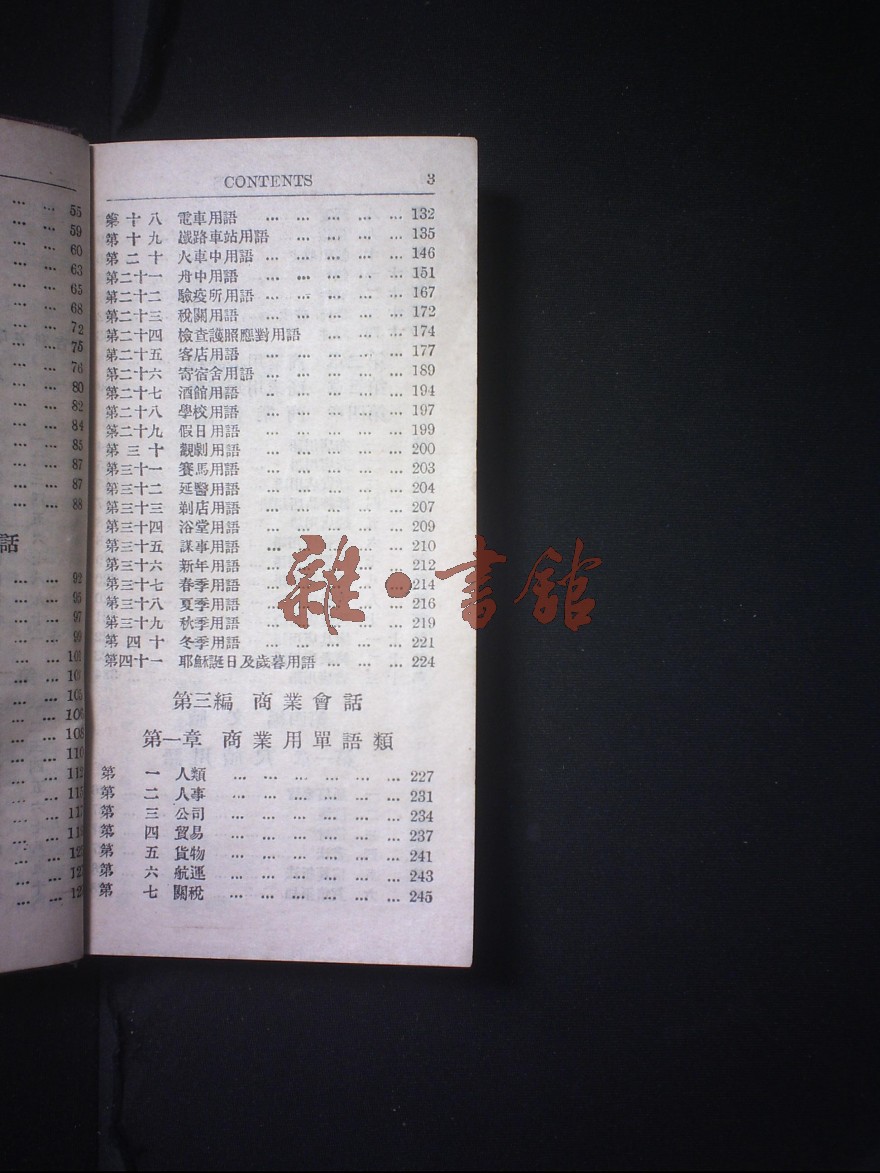 55
59
60
63
65
68
72
75
76
80
82
84
85
87
87
88
話
92
95
97
99
101
105
106
108
110
112
115
117
CONTENTS 3
第十八 電車用語 ... ... ... ... ... 132
第十九 鐵路車站用語 ... ... ... ... 135
第二十 火車中用語 ... ... ... ... ... 146
第二十一 舟中用語 ... ... ... ... ... 151
第二十二 驗疫所用語 ... ... ... ... ... 167
第二十三 稅關用語 ... ... ... ... ... 172
第二十四 檢查護照應對用語 ... ... ... 174
第二十五 客店用語 ... ... ... ... ... 177
第二十六 寄宿舍用語 ... ... ... ... ... 189
第二十七 酒館用語 ... ... ... ... ... 194
第二十八 學校用語 ... ... ... ... ... 197
第二十九 假日用語 ... ... ... ... ... 199
第三十 觀劇用語 ... ... ... ... ... 200
第三十一 賽馬用語 ... ... ... ... ... 203
第三十二 延醫用語 ... ... ... ... ... 204
第三十三 剃店用語 ... ... ... ... ... 207
第三十四 浴堂用語 ... ... ... ... ... 209
第三十五 謀事用語 ... ... ... ... ... 210
第三十六 新年用語 ... ... ... ... ... 212
第三十七 春季用語 ... ... ... ... ... 214
第三十八 夏季用語 ... ... ... ... ... 216
第三十九 秋季用語 ... ... ... ... ... 219
第四十 冬季用語 ... ... ... ... ... 221
第四十一 耶穌誕日及歲暮用語 ... ... ... 224
第三編 商業會話
第一章 商業用單語類
第一 人類 ... ... ... ... ... ... 227
第二 人事 ... ... ... ... ... ... 231
第三 公司 ... ... ... ... ... ... 234
第四 貿易 ... ... ... ... ... ... 237
第五 貨物 ... ... ... ... ... ... 241
第六 航運 ... ... ... ... ... ... 243
第七 關稅 ... ... ... ... ... ... 245
雜·書館